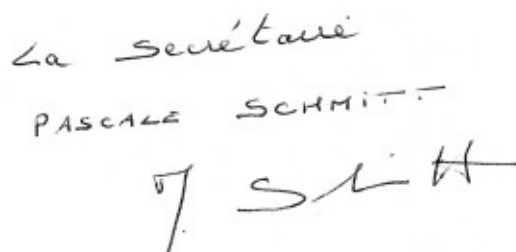 La Secrétaire
PASCALE SCHMITT